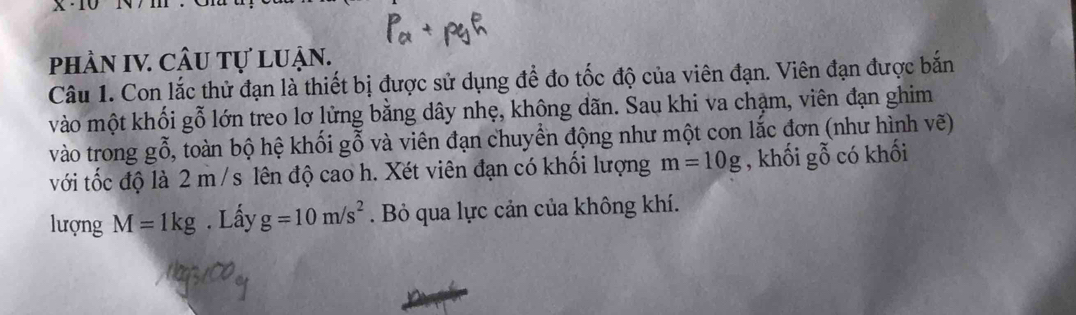 Pa + ρgh
PHẦN IV. CÂU TỰ LUẬN.
Câu 1. Con lắc thử đạn là thiết bị được sử dụng để đo tốc độ của viên đạn. Viên đạn được bắn
vào một khối gỗ lớn treo lơ lửng bằng dây nhẹ, không dãn. Sau khi va chạm, viên đạn ghim
vào trong gỗ, toàn bộ hệ khối gỗ và viên đạn chuyển động như một con lắc đơn (như hình vẽ)
với tốc độ là 2 m/s lên độ cao h. Xét viên đạn có khối lượng m = 10g, khối gỗ có khối
lượng M = 1kg. Lấy g = 10 m/s². Bỏ qua lực cản của không khí.